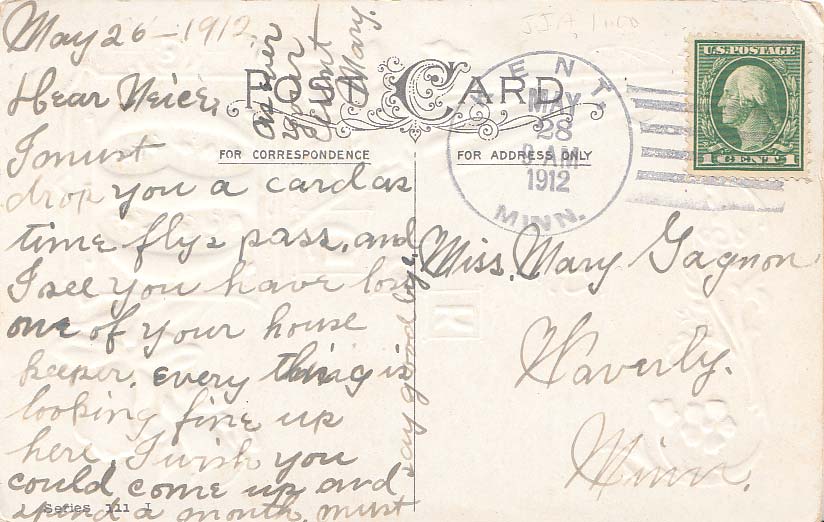 May 26-1912
Dear Neice,
I must
drop you a card as
time flys pass, and
I see you have lost
one of your house
keeper. every thing is
looking fine up
here, I wish you
could come up and
spend a month, must
say good bye.
as ever
your
Aunt
Mary.
POST CARD
FOR CORRESPONDENCE
FOR ADDRESS ONLY
KENT,
MAY
28
9 AM
1912
MINN.
U.S. POSTAGE
1 CENT 1
Miss, Mary Gagnon
Waverly.
Minn.
Series 111 I